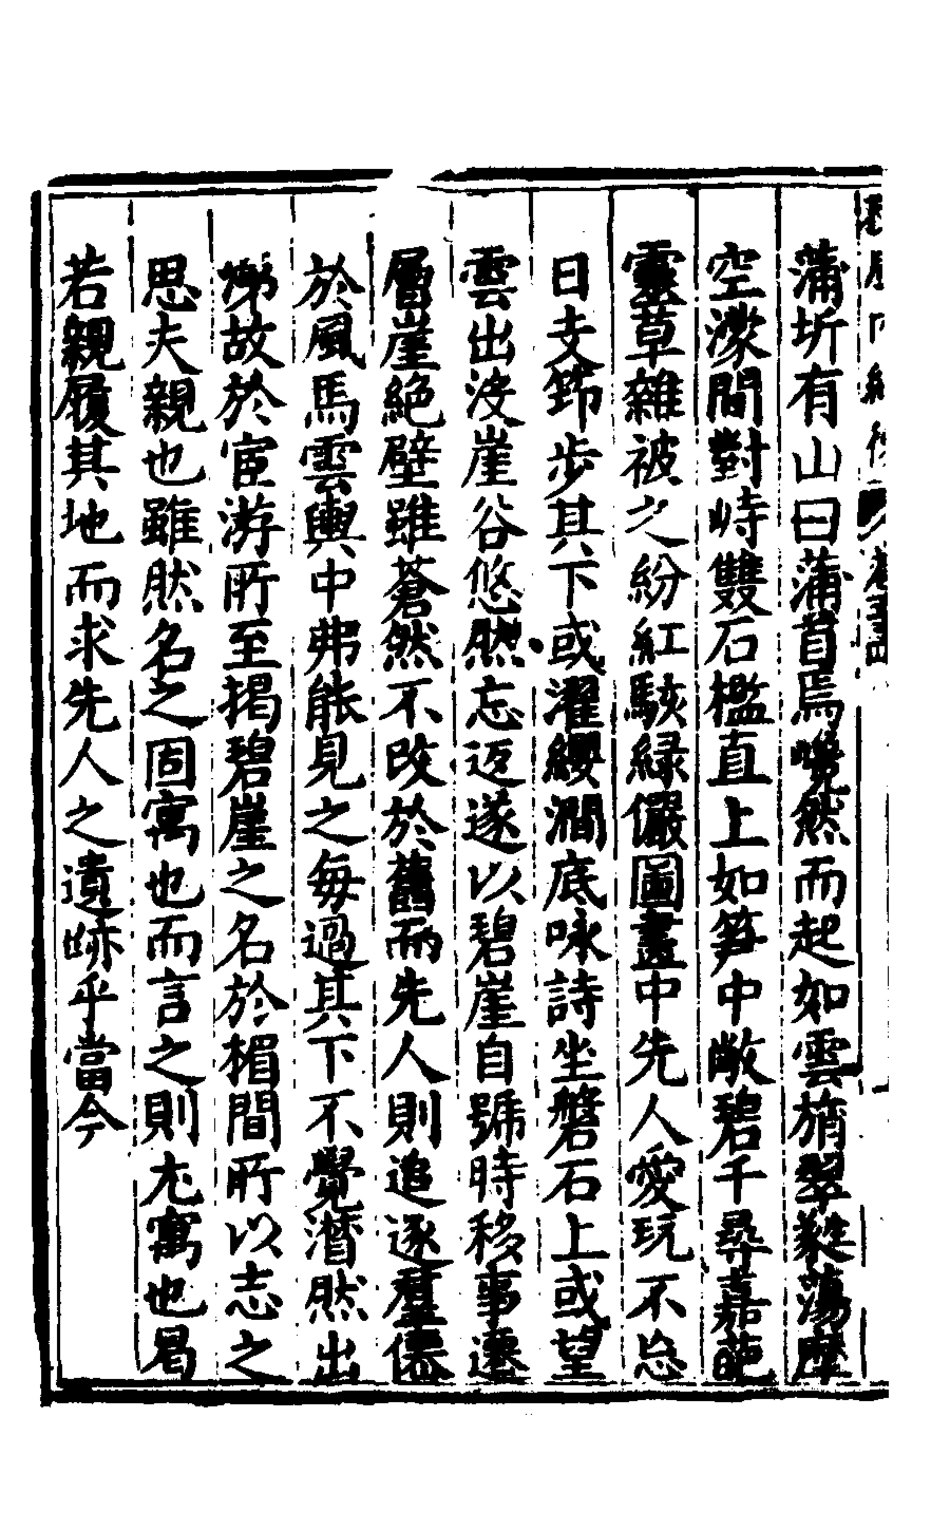 蒲圻有山曰蒲首焉嶤然而起如雲旓翠蕤蕩摩
空濛間對峙雙石檻直上如笋中敞碧千尋嘉葩
靈草雜被之紛紅駭緑儼圖畫中先人愛玩不忘
日支筇步其下或濯纓澗底咏詩坐磐石上或望
雲出没崖谷悠然忘返遂以碧崖自號時移事遷
層崖絶壁雖蒼然不改於舊而先人則追逐羣僊
於風馬雲輿中弗能見之每過其下不覺潸然出
涕故於宦游所至揭碧崖之名於楣間所以志之
思夫親也雖然名之固寓也而言之則尤寓也曷
若親履其地而求先人之遺跡乎當今